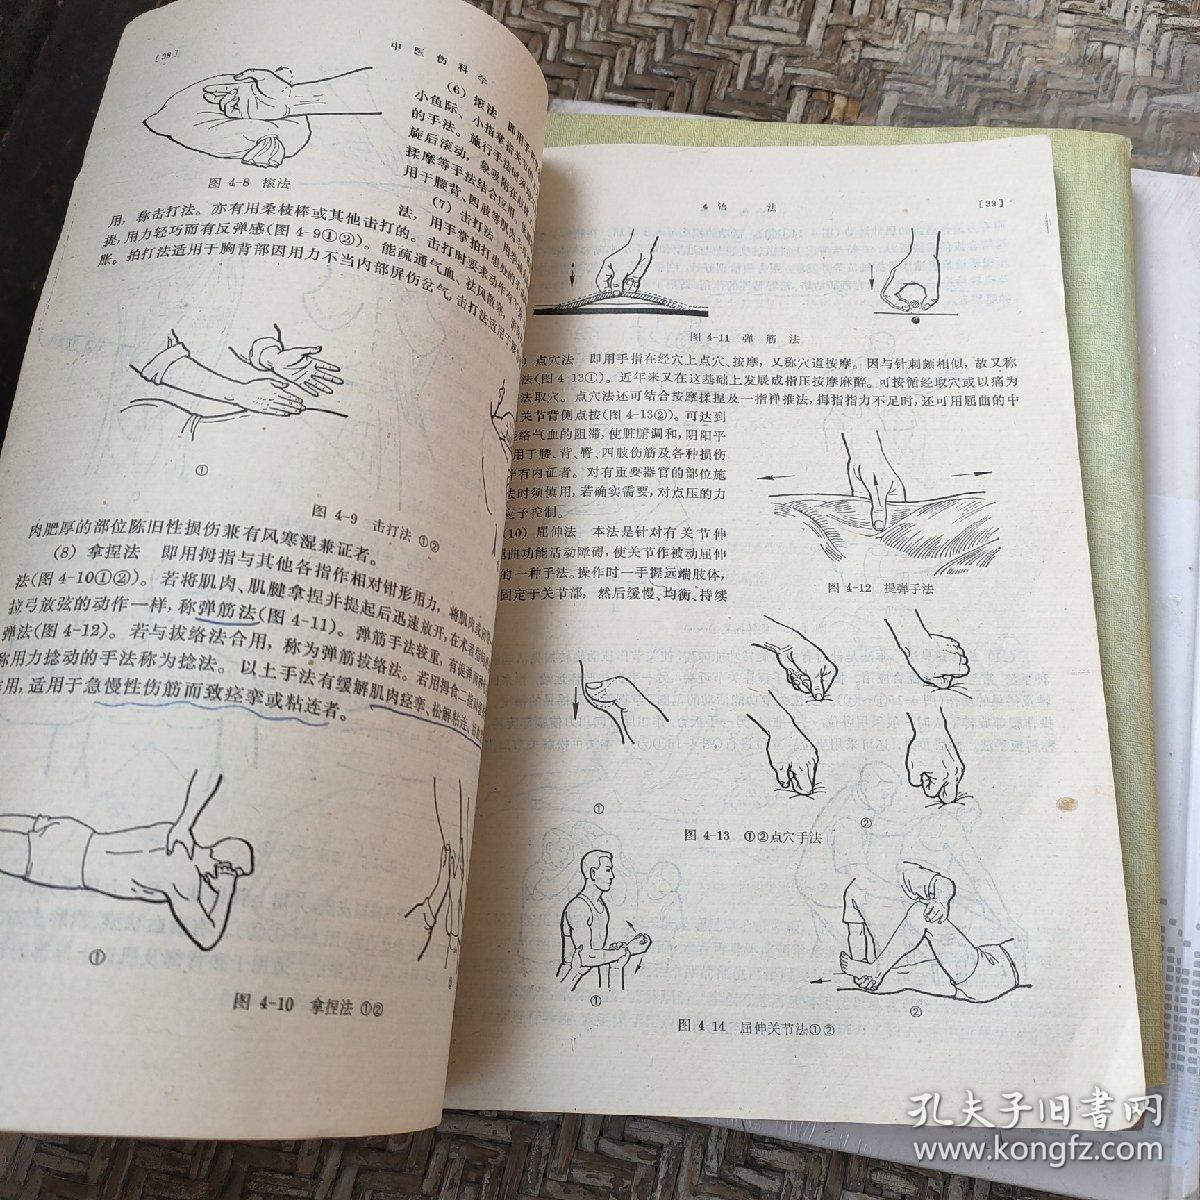 [38]
中医伤科学
图 4-8 㨰法
(6) 㨰法 即用手
小鱼际、小指掌指关
的手法。施行手法时须
旋后滚动,
揉摩等手法结合应用
用于腰背、四肢
(7) 击打法
法,用手掌拍打患处的
用,称击打法。亦有用桑枝棒或其他击打的。击打时要求动作有
提,用力轻巧而有反弹感(图 4-9①②)。能疏通气血、祛风散寒,
胀。拍打法适用于胸背部因用力不当内部屏伤岔气,击打法适用于
①
图 4-9 击打法 ①②
肉肥厚的部位陈旧性损伤兼有风寒湿兼证者。
(8) 拿捏法 即用拇指与其他各指作相对钳形用力,
法(图 4-10①②)。若将肌肉、肌腱拿捏并提起后迅速放开,
拉弓放弦的动作一样,称弹筋法(图 4-11)。弹筋手法较重,有提弹
弹法(图 4-12)。若与拔络法合用,称为弹筋拔络法。若用拇食二
用力捻动的手法称为捻法。以上手法有缓解肌肉痉挛、松解粘连、
用,适用于急慢性伤筋而致痉挛或粘连者。
①
图 4-10 拿捏法 ①②
4 治 法
[39]
图 4-11 弹筋法
点穴法 即用手指在经穴上点穴、按摩,又称穴道按摩。因与针刺颇相似,故又称
法(图 4-13①)。近年来又在这基础上发展成指压按摩麻醉。可按循经取穴或以痛为
法取穴。点穴法还可结合按摩揉握及一指禅推法,拇指指力不足时,还可用屈曲的中
关节背侧点按(图 4-13②)。可达到
络气血的阻滞,使脏腑调和,阴阳平
用于腰、背、臀、四肢伤筋及各种损伤
伴有内证者。对有重要器官的部位施
法时须慎用,若确实需要,对点压的力
应予控制。
(10) 屈伸法 本法是针对有关节伸
屈曲功能活动障碍,使关节作被动屈伸
的一种手法。操作时一手握远端肢体,
固定于关节部,然后缓慢、均衡、持续
图 4-12 提弹手法
①
②
图 4-13 ①②点穴手法
①
②
图 4-14 屈伸关节法①②
孔夫子旧书网
www.kongfz.com